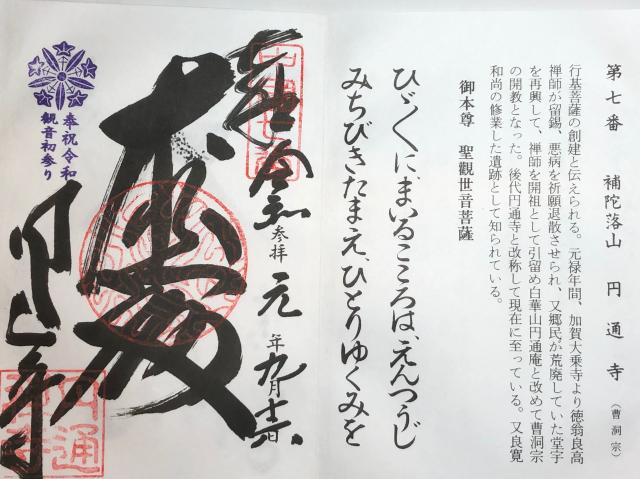 第七番　補陀落山　円通寺（曹洞宗）
行基菩薩の創建と伝えられる。元禄年間、加賀大乗寺より徳翁良高
禅師が留錫、悪病を祈願退散させられ、又郷民が荒廃していた堂宇
を再興して、禅師を開祖として引留め白華山円通庵と改めて曹洞宗
の開教となった。後代円通寺と改称して現在に至っている。又良寛
和尚の修業した遺跡として知られている。
御本尊　聖觀世音菩薩
ひゞくに、まいるこころは、えんつうじ
みちびきたまえ、ひとりゆくみを
令和
参拝
元年九月
奉祝令和
観音初参り
円通